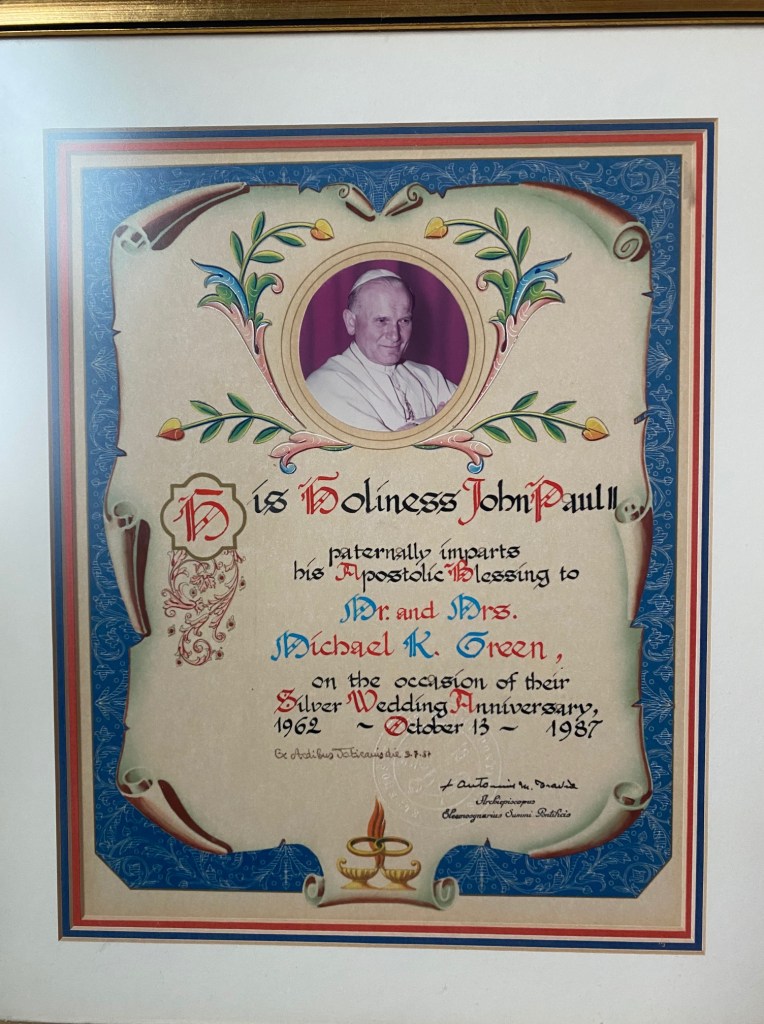 His Holiness John Paul II
paternally imparts
his Apostolic Blessing to
Mr. and Mrs.
Michael K. Green,
on the occasion of their
Silver Wedding Anniversary,
1962 ~ October 13 ~ 1987
die 3.7.87
+ Antonius M. Travia
Archiepiscopus
Eleemosynarius Summi Pontificis